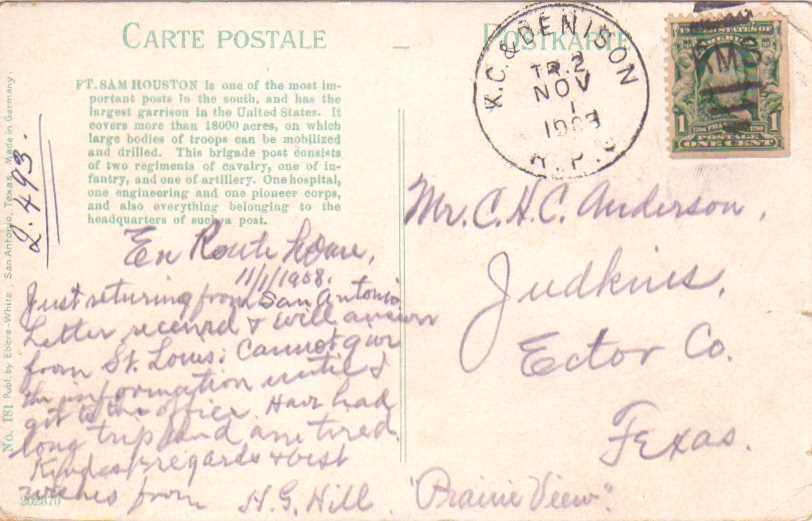 CARTE POSTALE — POSTKARTE
K.C. & DENISON
TR. 2
NOV
1
R.P.O.
RMS
UNITED STATES OF
AMERICA
1 1
POSTAGE
ONE CENT
FT. SAM HOUSTON is one of the most im-
portant posts in the south, and has the
largest garrison in the United States. It
covers more than 18000 acres, on which
large bodies of troops can be mobilized
and drilled. This brigade post consists
of two regiments of cavalry, one of in-
fantry, and one of artillery. One hospital,
one engineering and one pioneer corps,
and also everything belonging to the
headquarters of such a post.
2.493.
No. 181 Publ. by Ebers-White, San Antonio, Texas. Made in Germany.
En Route home,
11/1/1908.
Just returing from San Antonio
Letter received & will answer
from St. Louis. Cannot give
the information until I
get to the office. Have had
long trip and am tired.
Kindest regards & best
wishes from H. G. Hill. "Prairie View".
Mr. C. H. C. Anderson,
Judkins,
Ector Co.
Texas.